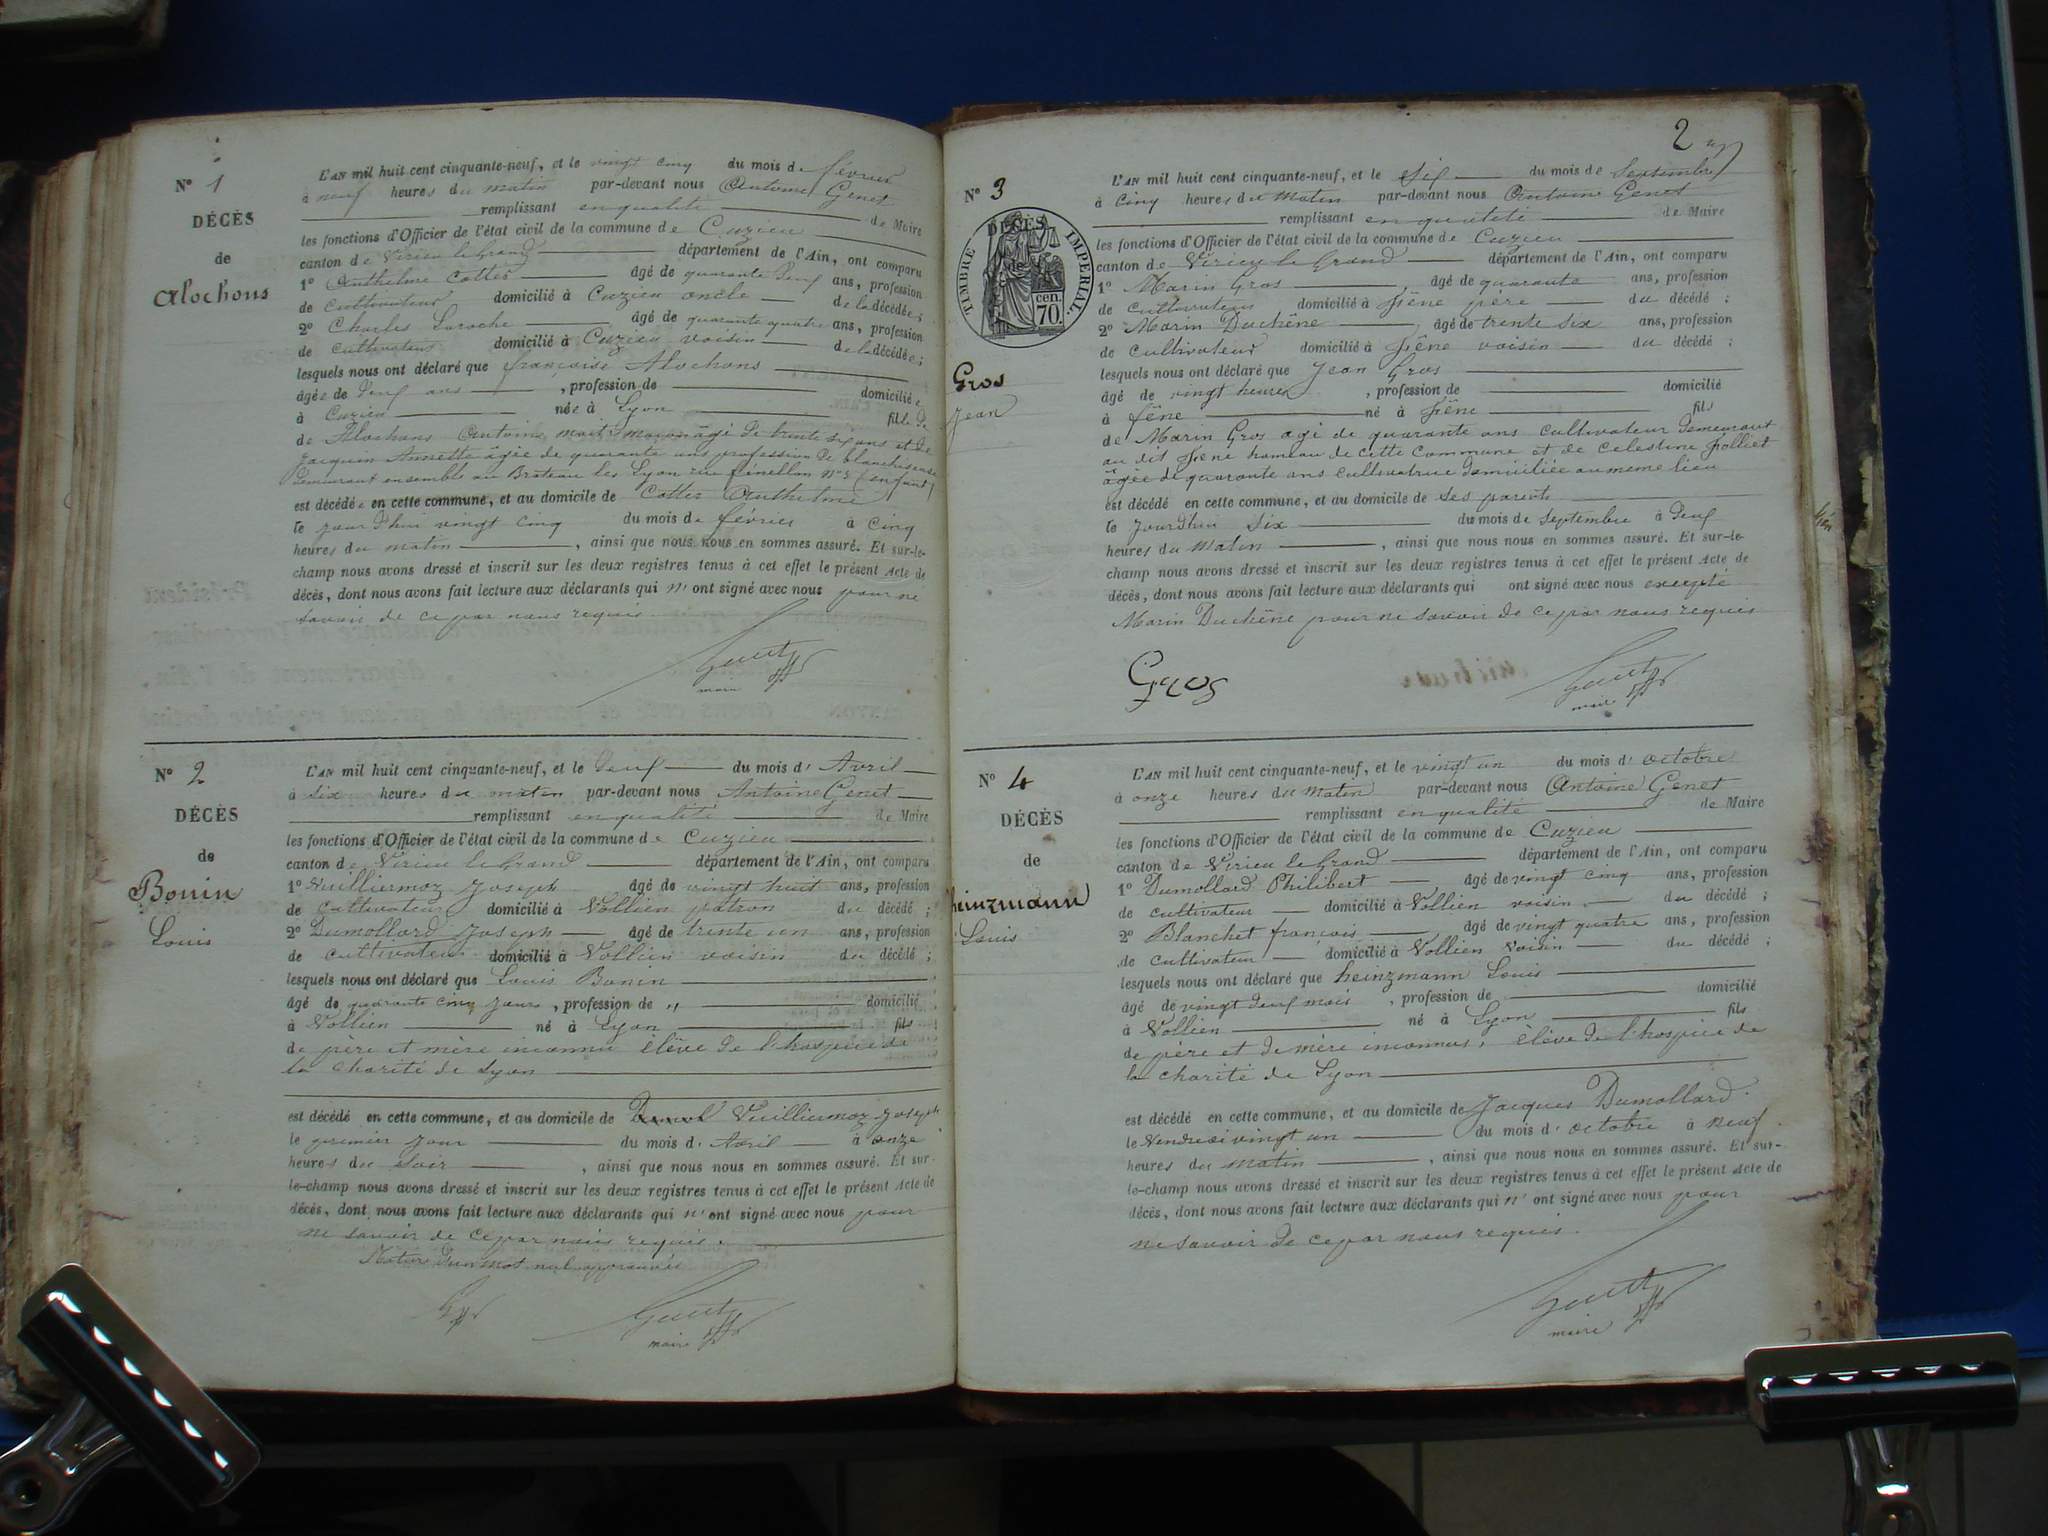 N° 1
DÉCÈS
de
Alochons
L'AN mil huit cent cinquante-neuf, et le vingt cinq du mois de février
à neuf heures du matin par-devant nous Antoine Genet
remplissant en qualité de Maire
les fonctions d'Officier de l'état civil de la commune de Cuzieu
canton de Virieu le Grand département de l'Ain, ont comparu
1° Anthelme Cottez âgé de quarante neuf ans, profession
de cultivateur domicilié à Cuzieu oncle de la décédée;
2° Charles Laroche âgé de quarante quatre ans, profession
de cultivateur domicilié à Cuzieu voisin de la décédée;
lesquels nous ont déclaré que françoise Alochons
âgée de neuf ans , profession de domiciliée
à Cuzieu née à Lyon fille de
de Alochons Antoine maitre maçon âgé de trente six ans et de
Jacquin Annette agée de quarante ans profession de blanchisseuse
demeurant ensemble au Broteau les Lyon rue fénellon n°5 (enfant)
est décédée en cette commune, et au domicile de Cottez Anthelme
le jourd'hui vingt cinq du mois de février à cinq
heures du matin , ainsi que nous nous en sommes assuré. Et sur-le-
champ nous avons dressé et inscrit sur les deux registres tenus à cet effet le présent Acte de
décès, dont nous avons fait lecture aux déclarants qui n'ont signé avec nous pour ne
savoir de ce par nous requis
Genet
maire
N° 2
DÉCÈS
de
Bonin
Louis
L'AN mil huit cent cinquante-neuf, et le deux du mois d'Avril
à six heures du matin par-devant nous Antoine Genet
remplissant en qualité de Maire
les fonctions d'Officier de l'état civil de la commune de Cuzieu
canton de Virieu le Grand département de l'Ain, ont comparu
1° Vuilliermoz Joseph âgé de vingt huit ans, profession
de cultivateur domicilié à Vollien patron du décédé;
2° Dumollard Joseph âgé de trente un ans, profession
de cultivateur domicilié à Vollien voisin du décédé;
lesquels nous ont déclaré que Louis Bonin
âgé de quarante cinq jours, profession de " domicilié
à Vollien né à Lyon fils
de père et mère inconnu élève de l'hospice de
la charité de Lyon
est décédé en cette commune, et au domicile de Vuilliermoz Joseph
le premier jour du mois d'Avril à onze
heures du soir , ainsi que nous nous en sommes assuré. Et sur-
le-champ nous avons dressé et inscrit sur les deux registres tenus à cet effet le présent Acte de
décès, dont nous avons fait lecture aux déclarants qui n'ont signé avec nous pour
ne savoir de ce par nous requis.
Rature d'un mot nul approuvée
Genet
maire
2
N° 3
TIMBRE IMPÉRIAL
DÉCÈS
de
70. cen.
Gros
Jean
L'AN mil huit cent cinquante-neuf, et le Six du mois de Septembre
à cinq heures du matin par-devant nous Antoine Genet
remplissant en qualité de Maire
les fonctions d'Officier de l'état civil de la commune de Cuzieu
canton de Virieu le Grand département de l'Ain, ont comparu
1° Marin Gros âgé de quarante ans, profession
de cultivateur domicilié à fène père du décédé;
2° Marin Duchêne âgé de trente six ans, profession
de cultivateur domicilié à fène voisin du décédé;
lesquels nous ont déclaré que Jean Gros
âgé de vingt heures , profession de domicilié
à fène né à fène fils
de Marin Gros agé de quarante ans cultivateur demeurant
au dit fène hameau de cette commune et de Celestine Jolliet
âgée de quarante ans cultivatrice domiciliée au meme lieu
est décédé en cette commune, et au domicile de ses parents
le jourdhui six du mois de Septembre à deux
heures du matin , ainsi que nous nous en sommes assuré. Et sur-le-
champ nous avons dressé et inscrit sur les deux registres tenus à cet effet le présent Acte de
décès, dont nous avons fait lecture aux déclarants qui ont signé avec nous excepté
Marin Duchêne pour ne savoir de ce par nous requis
Gros
Genet
maire
N° 4
DÉCÈS
de
heinzmann
Louis
L'AN mil huit cent cinquante-neuf, et le vingt un du mois d'octobre
à onze heures du matin par-devant nous Antoine Genet
remplissant en qualité de Maire
les fonctions d'Officier de l'état civil de la commune de Cuzieu
canton de Virieu le Grand département de l'Ain, ont comparu
1° Dumollard Philibert âgé de vingt cinq ans, profession
de cultivateur domicilié à Vollien voisin du décédé;
2° Blanchet françois âgé de vingt quatre ans, profession
de cultivateur domicilié à Vollien voisin du décédé;
lesquels nous ont déclaré que heinzmann Louis
âgé de vingt deux mois , profession de domicilié
à Vollien né à Lyon fils
de père et de mère inconnus, élève de l'hospice de
la charité de Lyon
est décédé en cette commune, et au domicile de Jacques Dumollard.
le Vendredi vingt un du mois d'octobre à neuf
heures du matin , ainsi que nous nous en sommes assuré. Et sur-
le-champ nous avons dressé et inscrit sur les deux registres tenus à cet effet le présent Acte de
décès, dont nous avons fait lecture aux déclarants qui n'ont signé avec nous pour
ne savoir de ce par nous requis.
Genet
maire